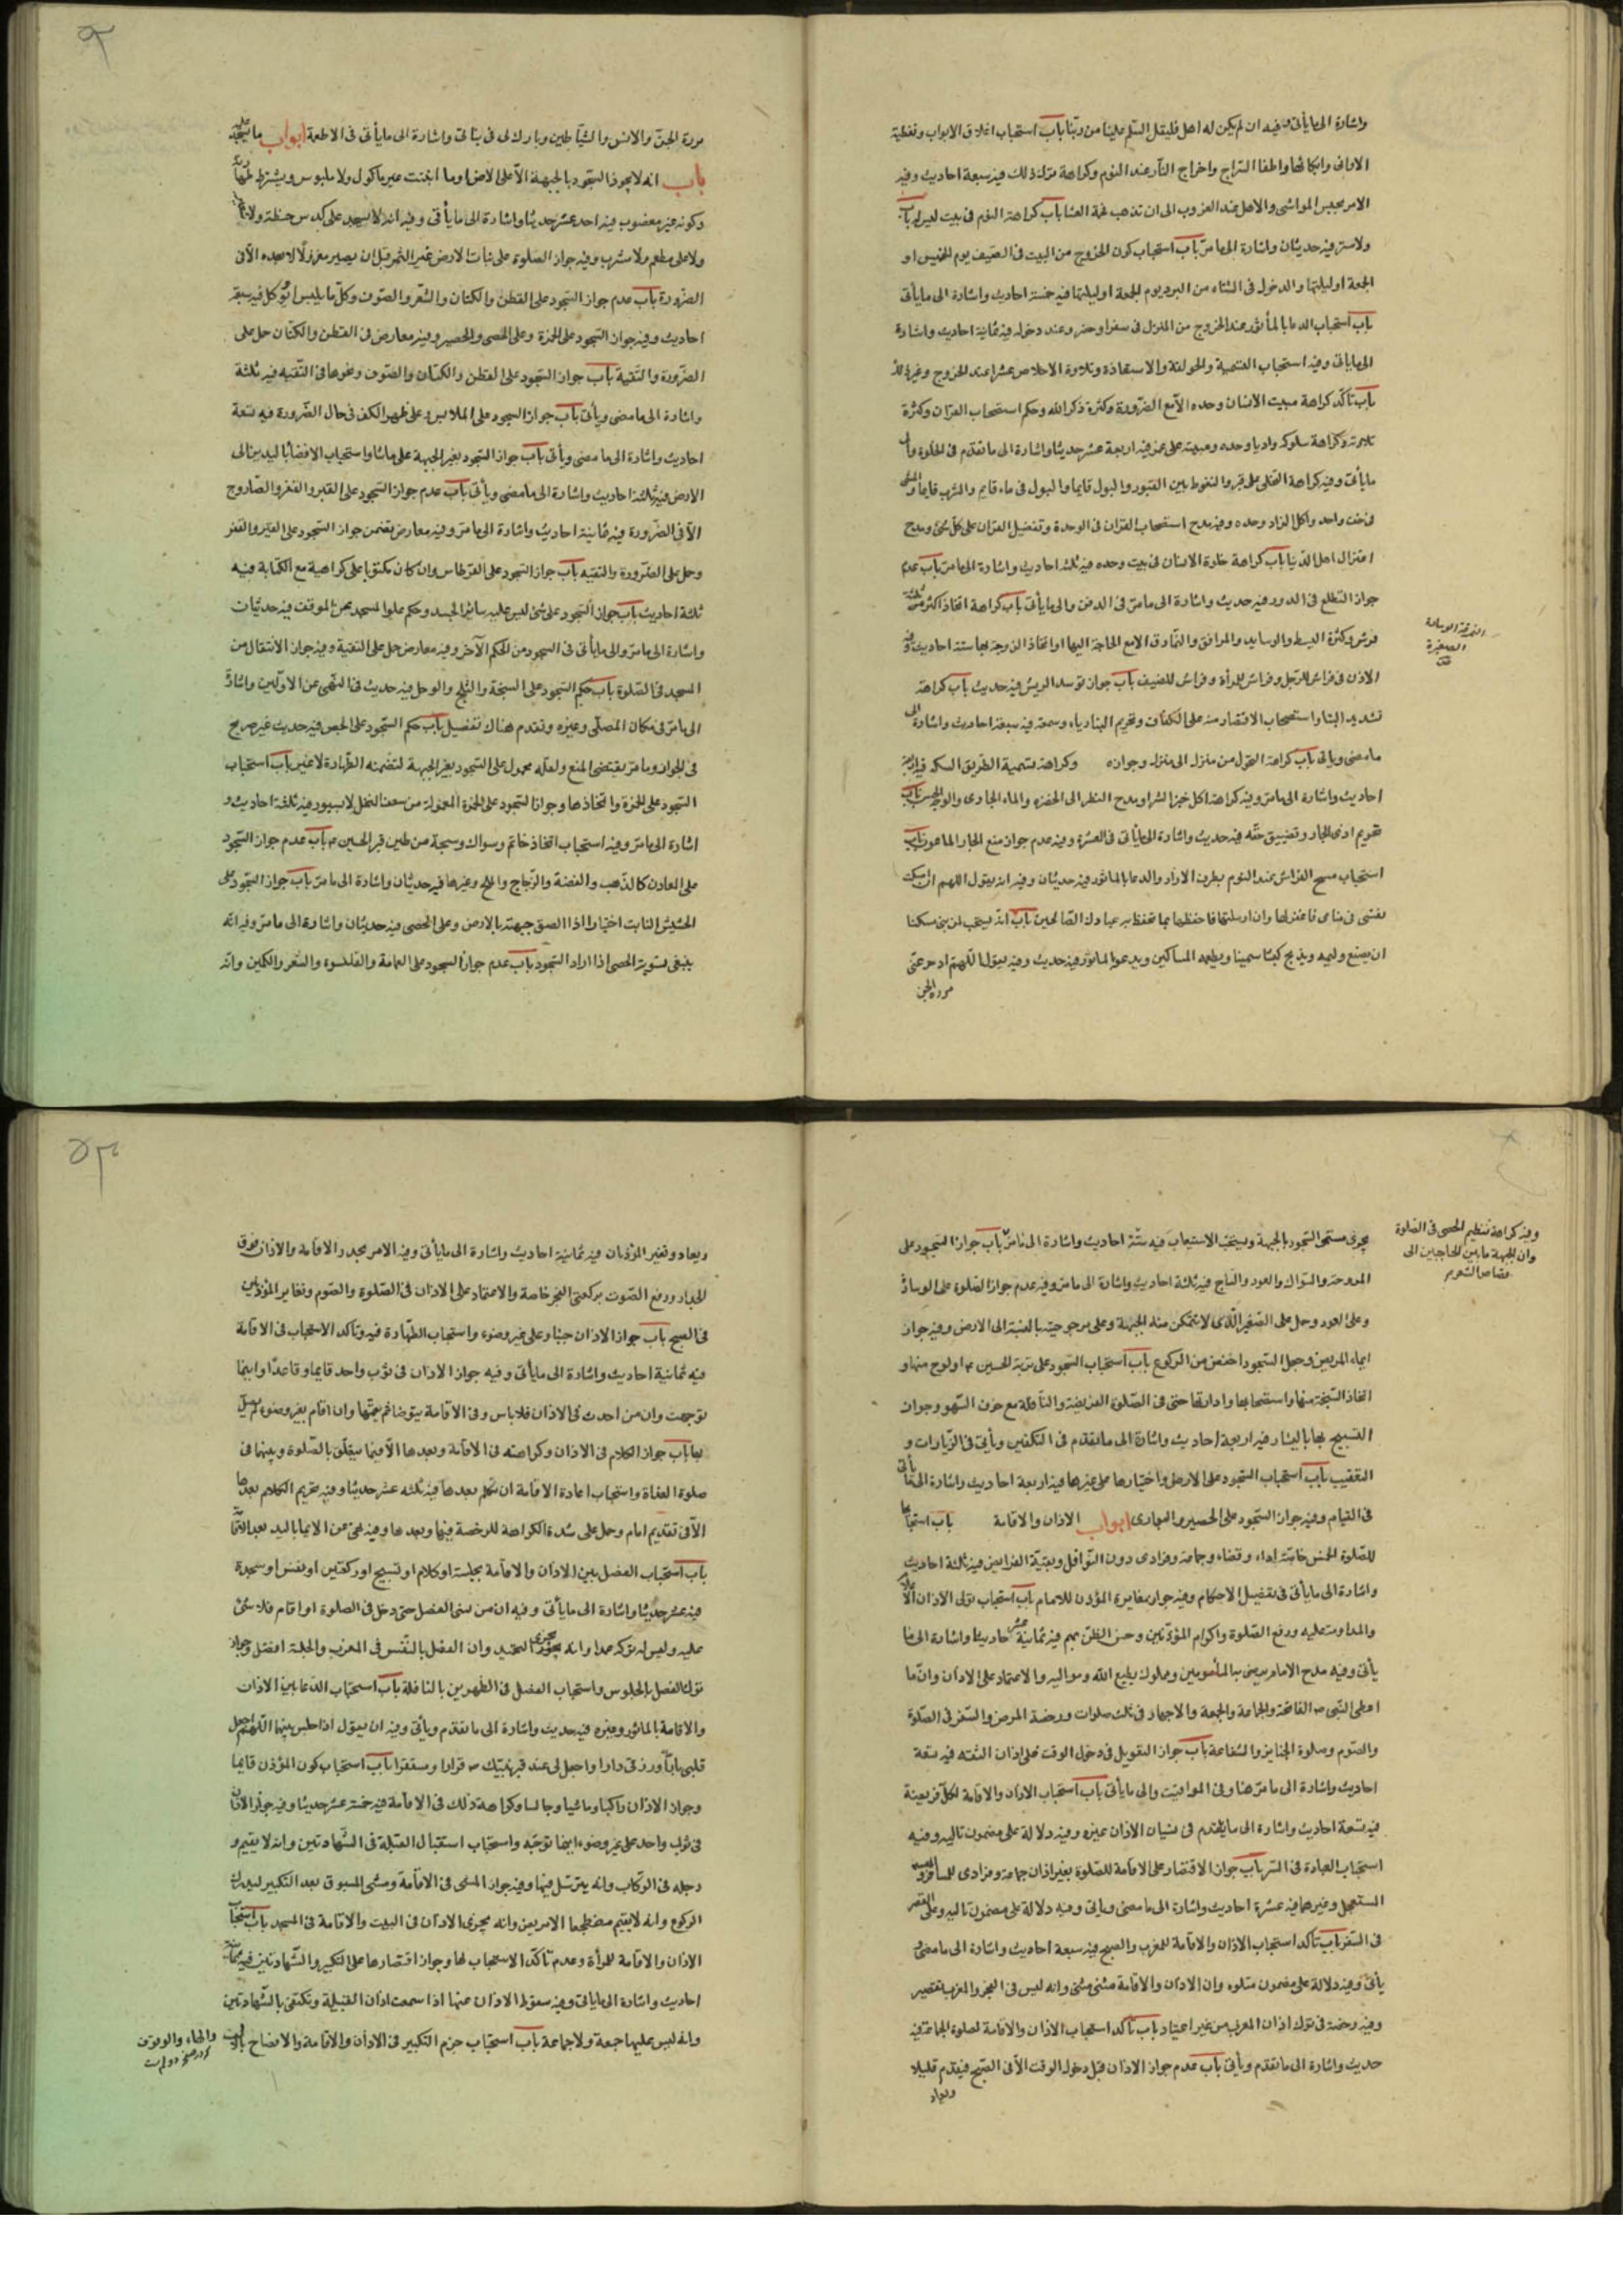 واشارة الى ما يأتى وفيه ان لم يكن له اهل فليقل السلم علينا من ربنا باب استحباب اغلاق الابواب وتغطية
الاوانى وايكائها واطفا السراج واخراج النار عند النوم وكراهة ترك ذلك فيه سبعة احاديث وفيه
الامر بحبس المواشى والاهل عند الغروب الى ان تذهب فحمة العشا باب كراهة النوم فى بيت ليس له باب
ولا ستر فيه حديثان واشارة الى ما مر باب استحباب كون الخروج من البيت فى الصيف يوم الخميس او
الجمعة او ليلتها والدخول فى الشتاء من البرد يوم الجمعة او ليلتها فيه خمسة احاديث واشارة الى ما يأتى
باب استحباب الدعا بالمأثور عند الخروج من المنزل فى سفر او حضر وعند دخوله فيه ثمانية احاديث واشارة
الى ما ياتى وفيه استحباب التسمية والحولقة والاستعاذة وتلاوة الاخلاص عشرا عند الخروج وغير ذلك
باب تأكد كراهة مبيت الانسان وحده الا مع الضرورة وكثرة ذكر الله وحكم استصحاب القرآن وكثرة
تلاوته وكراهة سلوكه واديا وحده ومبيته على غمر فيه اربعة عشر حديثا واشارة الى ما تقدم فى الخلوة والى
ما يأتى وفيه كراهة التخلى على قبر والتغوط بين القبور والبول قايما والبول فى ماء قايم والشرب قايما والمشى
فى خف واحد واكل الزاد وحده وفيه مدح استصحاب القرآن فى الوحدة وتفضيل القرآن على كل شئ ومدح
اعتزال اهل الدنيا باب كراهة خلوة الانسان فى بيت وحده فيه ثلثة احاديث واشارة الى ما مر باب عدم
جواز التطلع فى الدور فيه حديث واشارة الى ما مر فى الدفن والى ما يأتى باب كراهة اتخاذ اكثر من ثلثة
فرش وكثرة البسط والوسايد والمرافق والنمارق الا مع الحاجة اليها او اتخاذ الزوجة لها ستة احاديث وفيه
النمرقة الوسادة
الصغيرة
الاذن فى فراش للرجل وفراش للمرأة وفراش للضيف باب جواز توسد الريش فيه حديث باب كراهة
تشديد البنا واستصحاب الاقتصار منه على الكفاف وتحريم البنا رياء وسمعة فيه سبعة احاديث واشارة الى
ما مضى وياتى باب كراهة التحول من منزل الى منزل وجوازه وكراهة تسمية الطريق السكة فيه اربعة
احاديث واشارة الى ما مر وفيه كراهة اكل خبز الشرا ومدح النظر الى الخضرة والماء الجارى والوجه الحسن باب
تحريم اذى الجار وتضييق حقه فيه حديث واشارة الى ما يأتى فى العشرة وفيه عدم جواز منع الجار الماعون باب
استحباب مسح الفراش عند النوم بطرف الازار والدعا بالماثور فيه حديثان وفيه انه يقول اللهم ان امسكت
نفسى فى منامى فاغفر لها وان ارسلتها فاحفظها بما تحفظ به عبادك الصالحين باب انه يستحب لمن بنى مسكنا
ان يصنع وليمة ويذبح كبشا سمينا ويطعمه المساكين ويدعو بالماثور فيه حديث وفيه يقول اللهم ادحر عنى
مردة الجن
مردة الجن والانس والشياطين وبارك لى فى بنائى واشارة الى ما يأتى فى الاطعمة ابواب ما يسجد عليه
باب انه لا يجوز السجود بالجبهة الا على الارض او ما انبتت غير ماكول ولا ملبوس ويشترط طهارته
وكونه غير مغصوب فيه احد عشر حديثا واشارة الى ما يأتى وفيه انه لا يسجد على كدس حنطة ولا
ولا على مطعم ولا مشرب وفيه جواز الصلوة على نبات الارض غير الثمر قبل ان يصير مغزولا لا بعده الا فى
الضرورة باب عدم جواز السجود على القطن والكتان والشعر والصوف وكل ما يلبس او يؤكل فيه سبعة
احاديث وفيه جواز السجود على الخمرة وعلى الحصى والحصير وفيه معارض فى القطن والكتان حمل على
الضرورة والتقية باب جواز السجود على القطن والكتان والصوف ونحوها فى التقية فيه ثلثة
واشارة الى ما مضى ويأتى باب جواز السجود على الملابس وعلى ظهر الكف فى حال الضرورة فيه تسعة
احاديث واشارة الى ما مضى ويأتى باب جواز السجود بغير الجبهة على ما شا واستحباب الافضا باليدين الى
الارض فيه ثلثة احاديث واشارة الى ما مضى ويأتى باب عدم جواز السجود على القير والقفر والصاروج
الا فى الضرورة فيه ثمانية احاديث واشارة الى ما مر وفيه معارض تضمن جواز السجود على القير والقفر
وحمل على الضرورة والتقية باب جواز السجود على القرطاس وان كان مكتوبا على كراهية مع الكتابة فيه
ثلثة احاديث باب جواز السجود على شئ ليس عليه سائر الجسد وحكم علو المسجد عن الموقف فيه حديثان
واشارة الى ما مر والى ما يأتى فى السجود من الحكم الآخر وفيه معارض حمل على التقية وفيه جواز الانتقال من
المسجد فى الصلوة باب حكم السجود على السبخة والثلج والوحل فيه حديث فى النهى عن الاولين واشارة
الى ما مر فى مكان المصلى وغيره وتقدم هناك تفصيل باب حكم السجود على الجص فيه حديث غير صريح
فى الجواز وما مر يقتضى المنع ولعله محمول على السجود بغير الجبهة لتضمنه الطهارة لا غير باب استحباب
السجود على الخمرة واتخاذها وجواز السجود على الخمرة المعمولة من سعف النخل لا بسيور فيه ثلثة احاديث و
اشارة الى ما مر وفيه استحباب اتخاذ خاتم وسواك وسبحة من طين قبر الحسين ع باب عدم جواز السجود
على المعادن كالذهب والفضة والزجاج والملح وغيرها فيه حديثان واشارة الى ما مر باب جواز السجود على
الحشيش النابت اختيارا اذا الصق جبهته بالارض وعلى الحصى فيه حديثان واشارة الى ما مر وفيه انه
ينبغى تسوية الحصى اذا اراد السجود باب عدم جواز السجود على العمامة والقلنسوة والشعر والكمين وانه
وفيه كراهة تنظيم الحصى فى الصلوة
وان الجبهة ما بين الحاجبين الى
قصاص الشعر
يجزى مسمى السجود بالجبهة ويستحب الاستيعاب فيه ستة احاديث واشارة الى ما مر باب جواز السجود على
المروحة والسواك والعود والساج فيه ثلثة احاديث واشارة الى ما مر وفيه عدم جواز الصلوة على الوسادة
وعلى العود وحمل على الصغير الذى لا يتمكن منه الجبهة وعلى مرجوحيته بالنسبة الى الارض وفيه جواز
ايماء المريض وجعل السجود اخفض من الركوع باب استحباب السجود على تربة الحسين ع او لوح منها و
اتخاذ السبحة منها واستصحابها وادارتها حتى فى الصلوة الفريضة والنافلة مع خوف السهو وجواز
التسبيح بها باليسار فيه اربعة احاديث واشارة الى ما تقدم فى التكفين ويأتى فى الزيارات و
التعقيب باب استحباب السجود على الارض واختيارها على غيرها فيه اربعة احاديث واشارة الى ما يأتى
فى القيام وفيه جواز السجود على الحصير والبوارى ابواب الاذان والاقامة باب استحبابهما
للصلوة الخمس خاصة اداء وقضاء وجماعة وفرادى دون النوافل وبقية الفرايض فيه ثلثة احاديث
واشارة الى ما يأتى فى تفصيل الاحكام وفيه جواز مغايرة المؤذن للامام باب استحباب تولى الاذان
والمداومة عليه ورفع الصلوة واكرام المؤذنين وحسن الظن بهم فيه ثمانية عشر حديثا واشارة الى ما
يأتى وفيه مدح الامام يرضى به المأمومين ومملوك يطيع الله ومواليه والاعتماد على الاذان وان ما
اعطى النبى ص الفاتحة والجماعة والجمعة والاجهار فى ثلث صلوات ورخصة المرض والسفر فى الصلوة
والصوم وصلوة الجنايز والشفاعة باب جواز التعويل فى دخول الوقت على اذان الثقة فيه تسعة
احاديث واشارة الى ما مر هنا وفى المواقيت والى ما يأتى باب استحباب الاذان والاقامة لكل فريضة
فيه تسعة احاديث واشارة الى ما تقدم فى نسيان الاذان وغيره وفيه دلالة على مضمون تاليه وفيه
استحباب العبادة فى السر باب جواز الاقتصار على الاقامة للصلوة بغير اذان جماعة وفرادى للمسافر و
المستعجل وغيرهما فيه عشرة احاديث واشارة الى ما مضى وياتى وفيه دلالة على مضمون تاليه وعلى القصر
فى السفر باب تأكد استحباب الاذان والاقامة للمغرب والصبح فيه سبعة احاديث واشارة الى ما مضى و
يأتى وفيه دلالة على مضمون متلوه وان الاذان والاقامة مثنى مثنى وانه ليس فى الفجر والمغرب تقصير
وفيه رخصة فى ترك اذان المغرب من غير اعتياد باب تأكد استحباب الاذان والاقامة لصلوة الجماعة فيه
حديث واشارة الى ما تقدم ويأتى باب عدم جواز الاذان قبل دخول الوقت الا فى الصبح فيقدم قليلا
ويعاد
ويعاد وتغير المؤذنان فيه ثمانية احاديث واشارة الى ما يأتى وفيه الامر بحدر الاقامة والاذان فوق
الجدار ورفع الصوت بركعتى الفجر خاصة والاعتماد على الاذان فى الصلوة والصوم وتغاير المؤذنين
فى الصبح باب جواز الاذان جنبا وعلى غير وضوء واستحباب الطهارة فيه وتأكد الاستحباب فى الاقامة
فيه ثمانية احاديث واشارة الى ما يأتى وفيه جواز الاذان فى ثوب واحد قايما وقاعدا واينما
توجهت وان من احدث فى الاذان فلا باس وفى الاقامة يتوضا ثم يتمها وان اقام بغير وضوء لم يصل
بها باب جواز الكلام فى الاذان وكراهته فى الاقامة وبعدها الا فيما يتعلق بالصلوة وبينهما فى
صلوة الغداة واستحباب اعادة الاقامة ان تكلم بعدها فيه ثلثه عشر حديثا وفيه تحريم الكلام بعدها
الا فى تقديم امام وحمل على شدة الكراهة للرخصة فيها وبعدها وفيه نهى عن الايما باليد بعد
باب استحباب الفصل بين الاذان والاقامة بجلسة او كلام او تسبيح او ركعتين او نفس او سجدة
فيه عشر حديثا واشارة الى ما يأتى وفيه ان من نسى الفصل حتى دخل فى الصلوة او اقام فلا شئ
عليه وليس له تركه عمدا وانه يجزى التحميد وان الفصل بالنفس فى المغرب والجلسة افضل وجواز
ترك الفصل بالجلوس واستحباب الفصل فى الظهرين بالنافلة باب استحباب الدعا بين الاذان
والاقامة بالماثور وغيره فيه حديث واشارة الى ما تقدم ويأتى وفيه ان يقول اذا جلس بينهما اللهم اجعل
قلبى بارا ورزقى دارا واجعل لى عند قبر نبيك ص قرارا ومستقرا باب استحباب كون المؤذن قايما
وجواز الاذان راكبا وماشيا وجالسا وكراهة ذلك فى الاقامة فيه خمسة عشر حديثا وفيه جواز الاذان
فى ثوب واحد على غير وضوء اينما توجه واستحباب استقبال القبلة فى الشهادتين وانه لا يقيم و
رجله فى الركاب وانه يترسل فيها وفيه جواز المشى فى الاقامة ومشى المسبوق بعد التكبير ليدرك
الركوع وانه لا يقيم مضطجعا الا مريض وانه يجزى الاذان فى البيت والاقامة فى المسجد باب استحباب
الاذان والاقامة للمرأة وعدم تأكد الاستحباب لها وجواز اقتصارها على التكبير والشهادتين فيه ثمانية
احاديث واشارة الى ما ياتى وفيه سقوط الاذان عنها اذا سمعت اذان القبيلة وتكتفى بالشهادتين
وانه ليس عليها جمعة ولا جماعة باب استحباب جزم التكبير فى الاذان والاقامة والافصاح بالالف
والهاء والوقوف